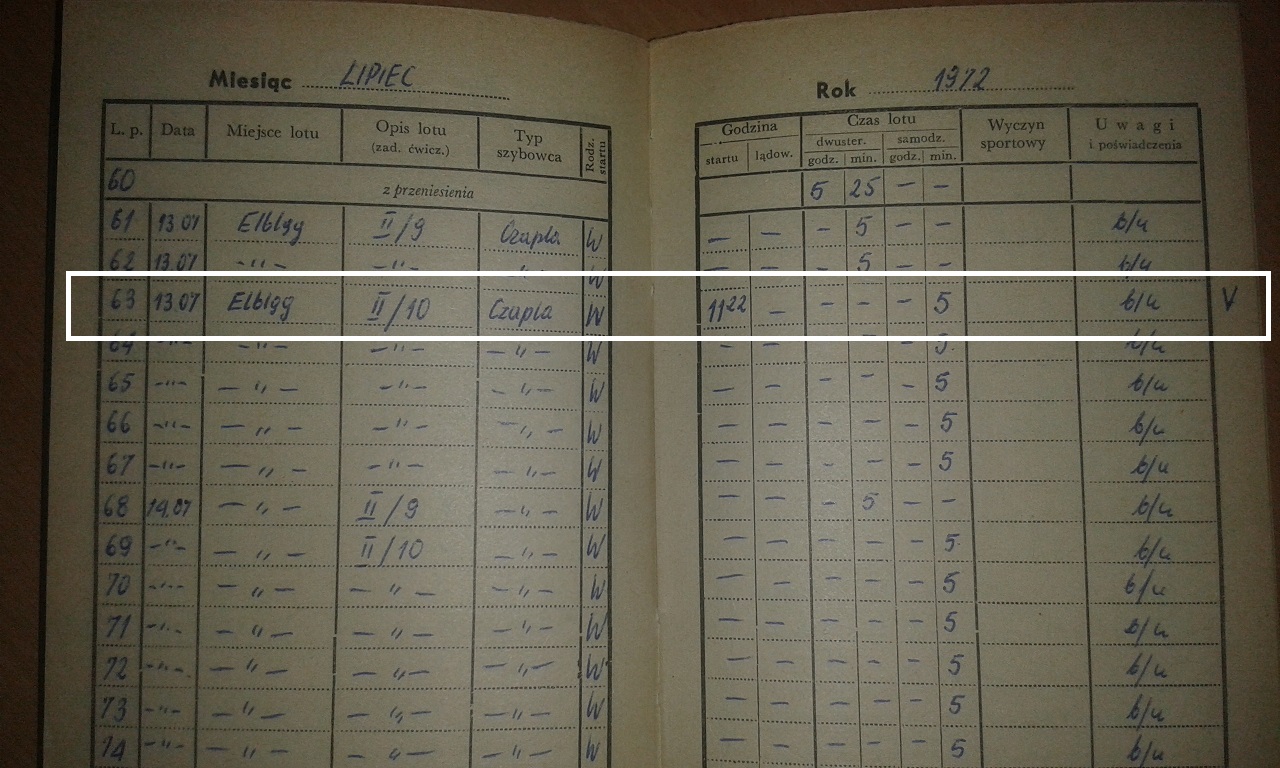 Miesiąc LIPIEC Rok 1972
L. p. Data Miejsce lotu Opis lotu (zad. ćwicz.) Typ szybowca Rodz. startu Godzina startu lądow. Czas lotu dwuster. godz. min. samodz. godz. min. Wyczyn sportowy Uwagi i poświadczenia
60 z przeniesienia 5 25 — —
61 13.07 Elbląg II/9 Czapla W — — - 5 - - b/u
62 13.07 -"- -"- -"- W — — - 5 - - b/u
63 13.07 Elbląg II/10 Czapla W 11 22 - - - - 5 b/u V
64 -"- -"- -"- -"- W - 5 b/u
65 -"- -"- -"- -"- W - - - - - 5 b/u
66 -"- -"- -"- -"- W - - - - - 5 b/u
67 -"- -"- -"- -"- W - - - - - 5 b/u
68 14.07 -"- II/9 -"- W - - - 5 - - b/u
69 -"- -"- II/10 -"- W - - - - - 5 b/u
70 -"- -"- -"- -"- W - - - - - 5 b/u
71 -"- -"- -"- -"- W - - - - - 5 b/u
72 -"- -"- -"- -"- W - - - - - 5 b/u
73 -"- -"- -"- -"- W - - - - - 5 b/u
74 -"- -"- -"- -"- W - - - - - 5 b/u